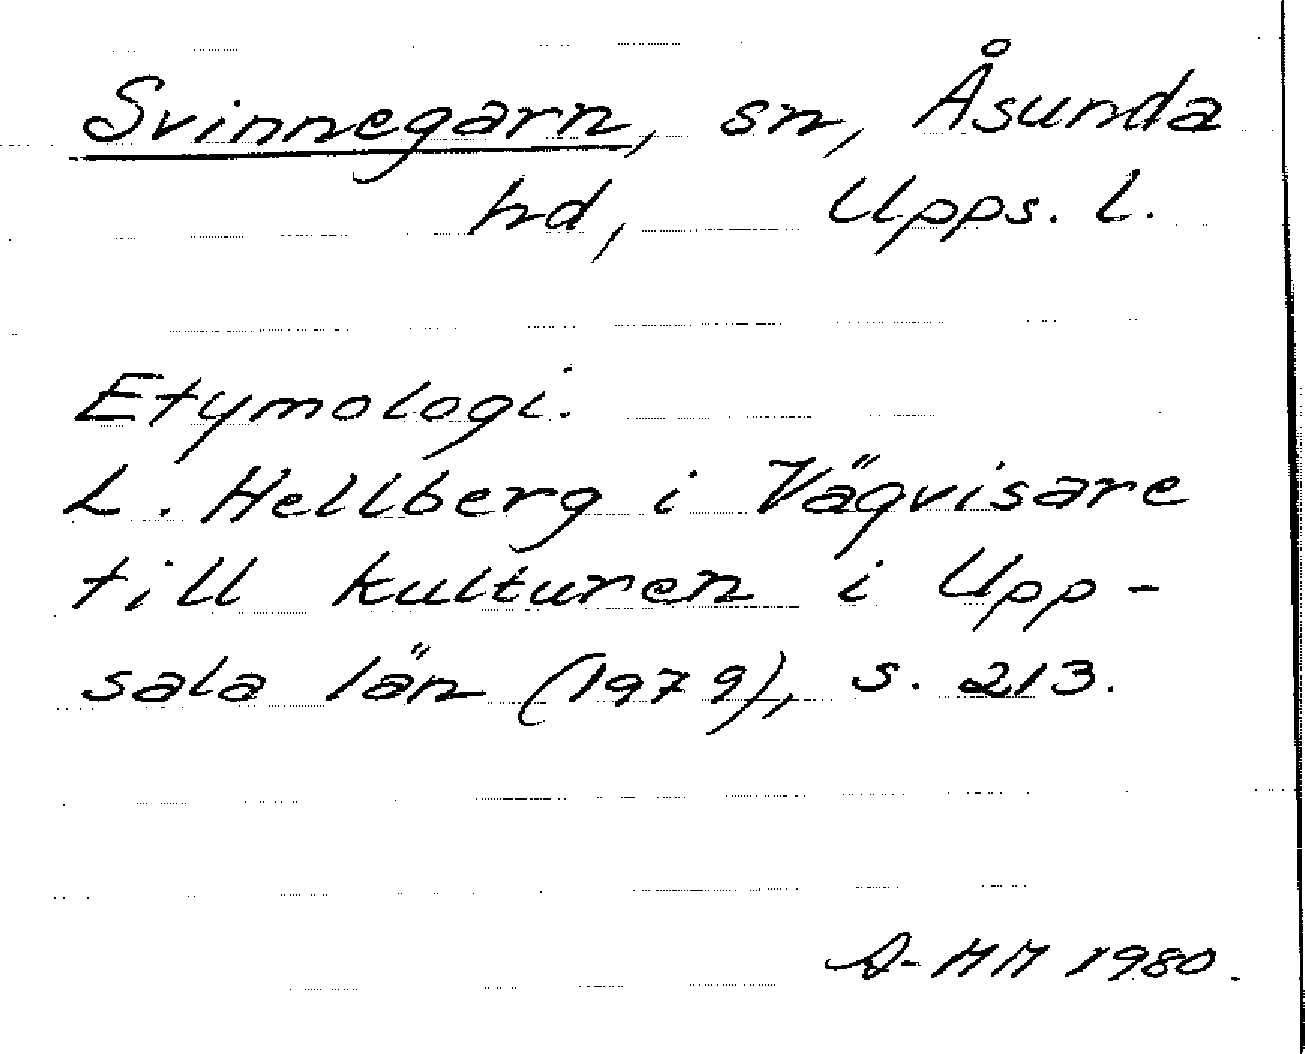 Svinnegarn, sn, Åsunda
hd, Upps. l.
Etymologi.
L. Hellberg i Vägvisare
till kulturen i Upp-
sala län (1979), s. 213.
A-MM 1980.